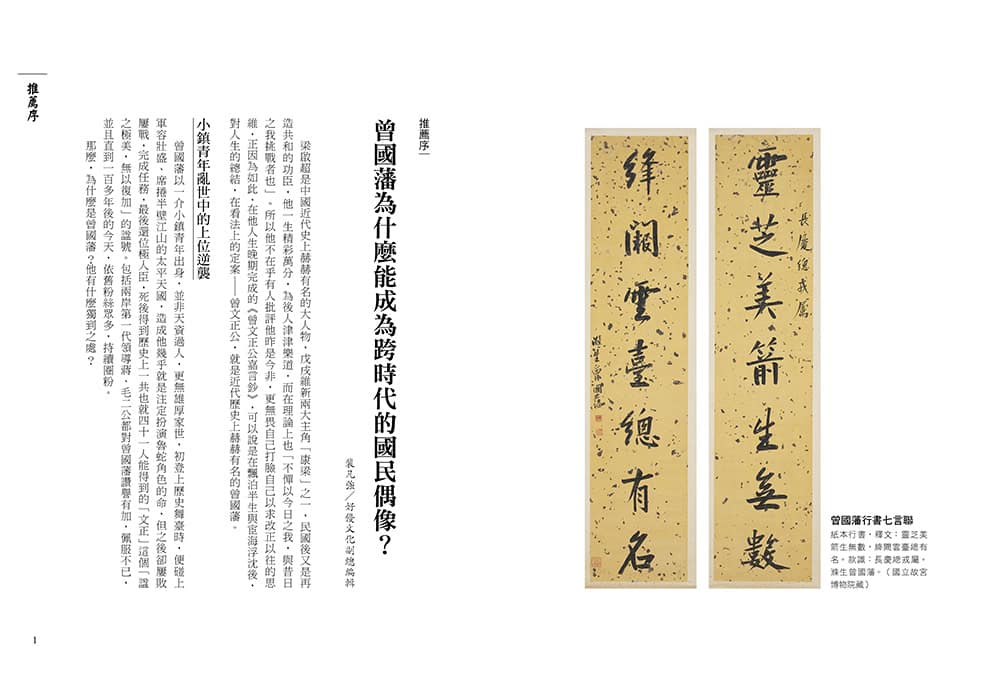 長慶總戎屬
靈芝美箭生無數
絳闕雲臺總有名
滌生曾國藩
曾國藩行書七言聯
紙本行書，釋文：靈芝美
箭生無數，絳闕雲臺總有
名。款識：長慶總戎屬。
滌生曾國藩。（國立故宮
博物院藏）
推薦序一
曾國藩為什麼能成為跨時代的國民偶像？
裴凡強／好優文化副總編輯
梁啟超是中國近代史上赫赫有名的大人物，戊戌維新兩大主角「康梁」之一，民國後又是再
造共和的功臣，他一生精彩萬分，為後人津津樂道，而在理論上也「不憚以今日之我，與昔日
之我挑戰者也」。所以他不在乎有人批評他昨是今非，更無畏自己打臉自己以求改正以往的思
維，正因為如此，在他人生晚期完成的《曾文正公嘉言鈔》，可以說是在飄泊半生與宦海浮沈後，
對人生的總結，在看法上的定案——曾文正公，就是近代歷史上赫赫有名的曾國藩。
小鎮青年亂世中的上位逆襲
曾國藩以一介小鎮青年出身，並非天資過人，更無雄厚家世，初登上歷史舞臺時，便碰上
軍容壯盛、席捲半壁江山的太平天國，造成他幾乎就是注定扮演魯蛇角色的命，但之後卻屢敗
屢戰，完成任務，最後還位極人臣，死後得到歷史上一共也就四十一人能得到的「文正」這個「謚
之極美，無以復加」的謚號。包括兩岸第一代領導蔣、毛二公都對曾國藩讚譽有加，佩服不已，
並且直到一百多年後的今天，依舊粉絲眾多，持續圈粉。
那麼，為什麼是曾國藩？他有什麼獨到之處？
推薦序
1